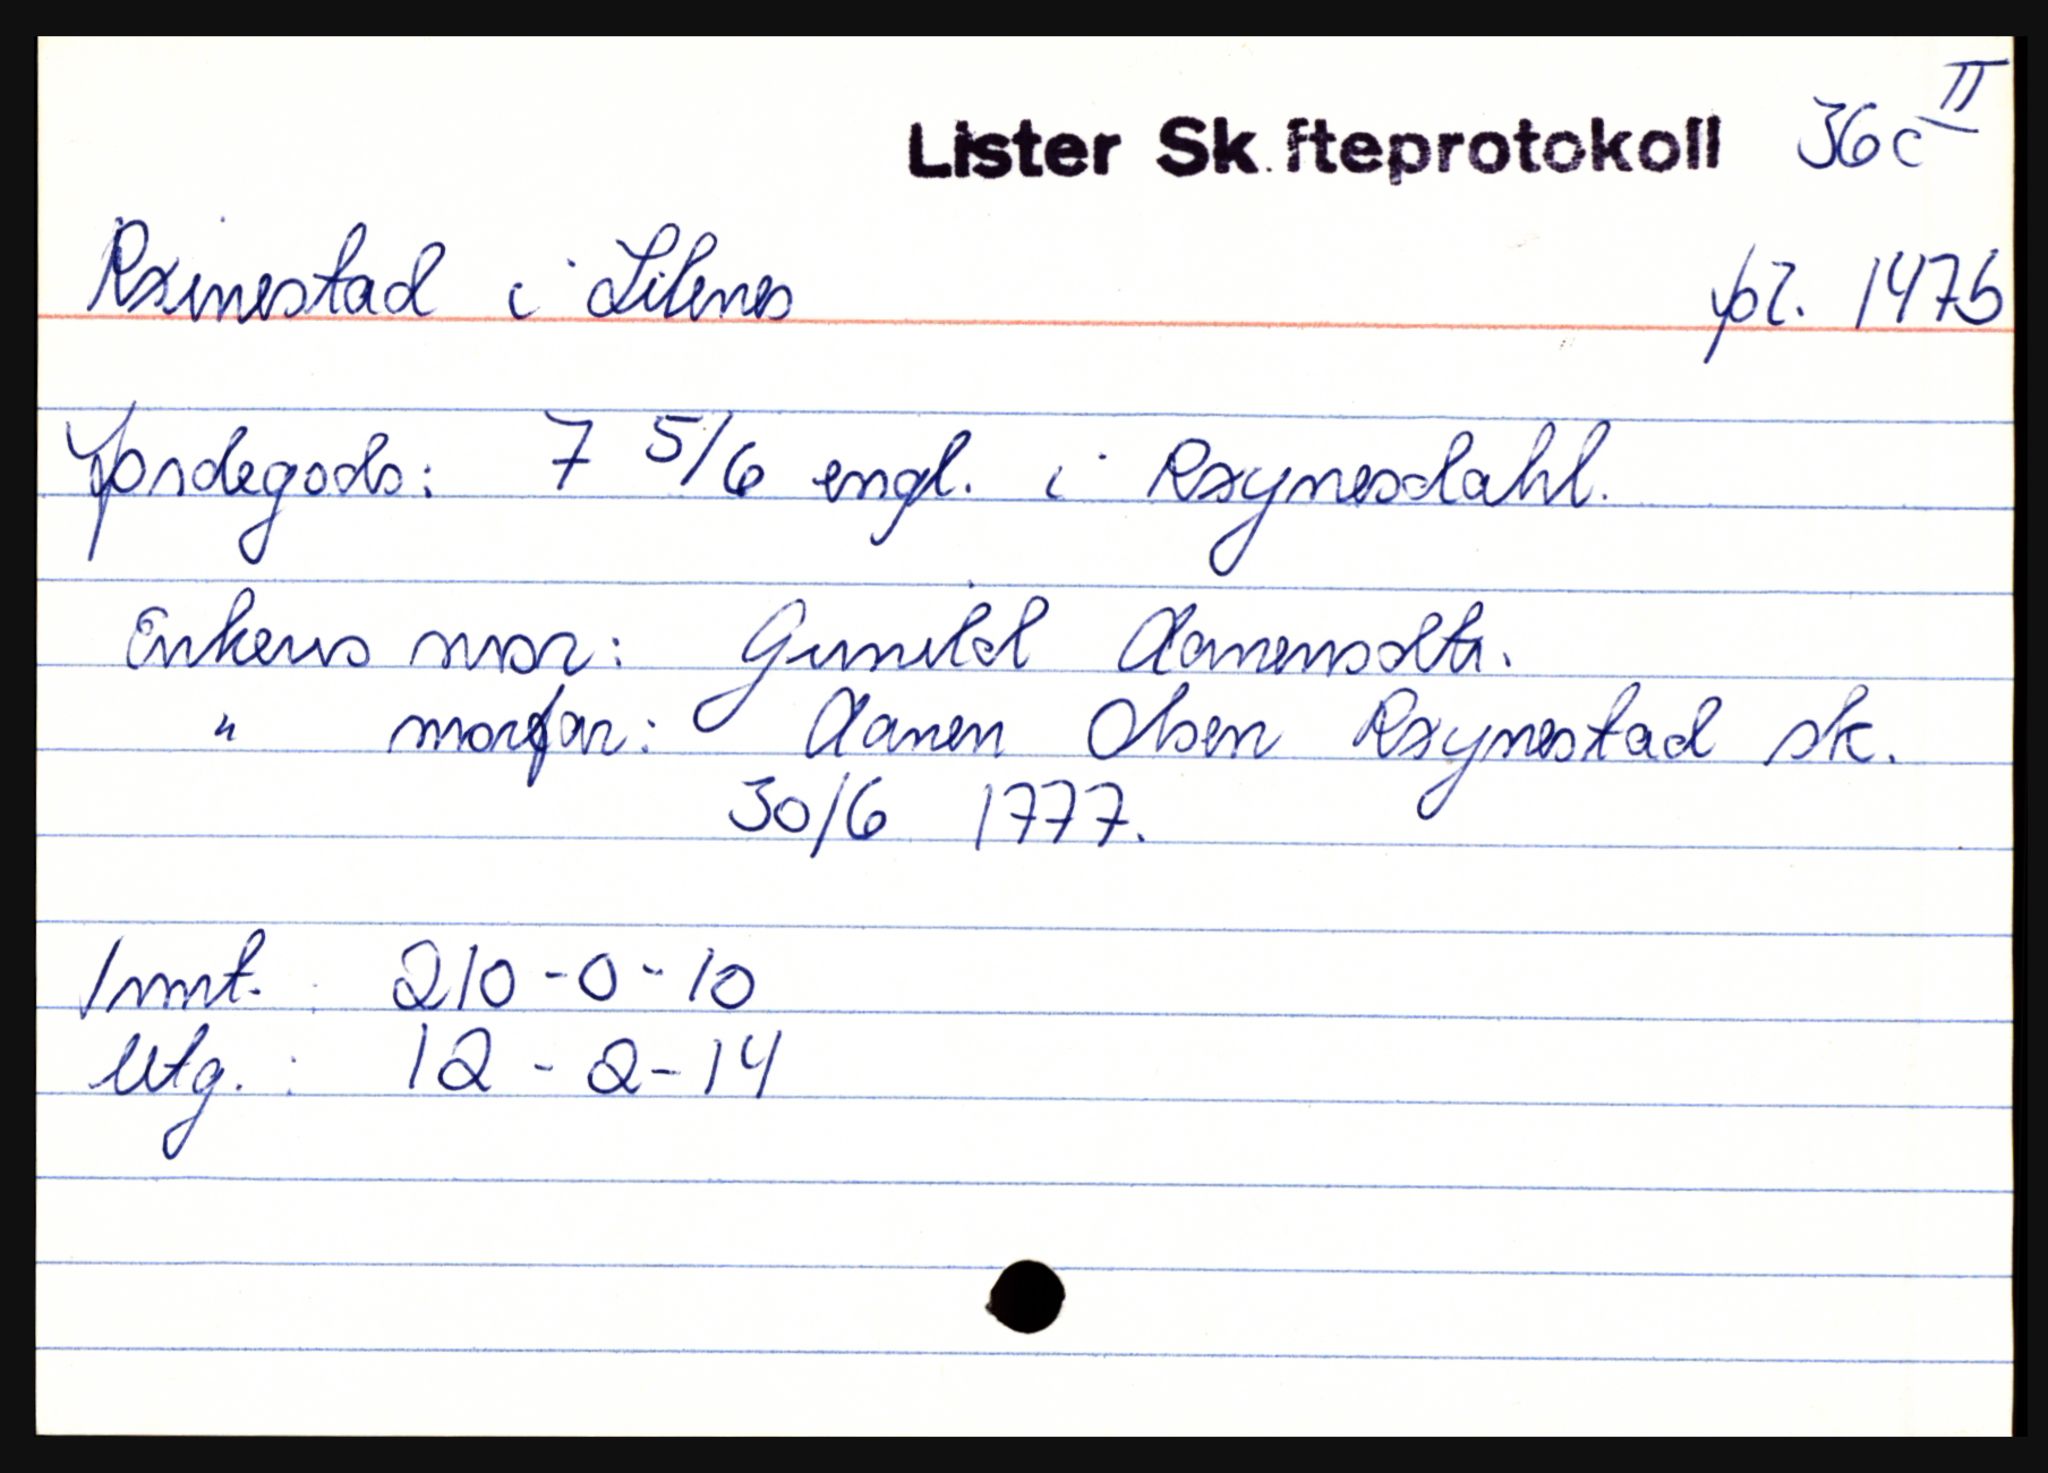 Lister Skifteprotokoll 36c II
Røinestad i Lilenes pr. 1476
Jordegods: 7 5/6 engl. i Røynesdahl.
Enkens mor: Gunild Aanensdtr.
" morfar: Aanen Olsen Røynestad sk.
30/6 1777.
Innt. : 210-0-10
Utg. : 12-2-14